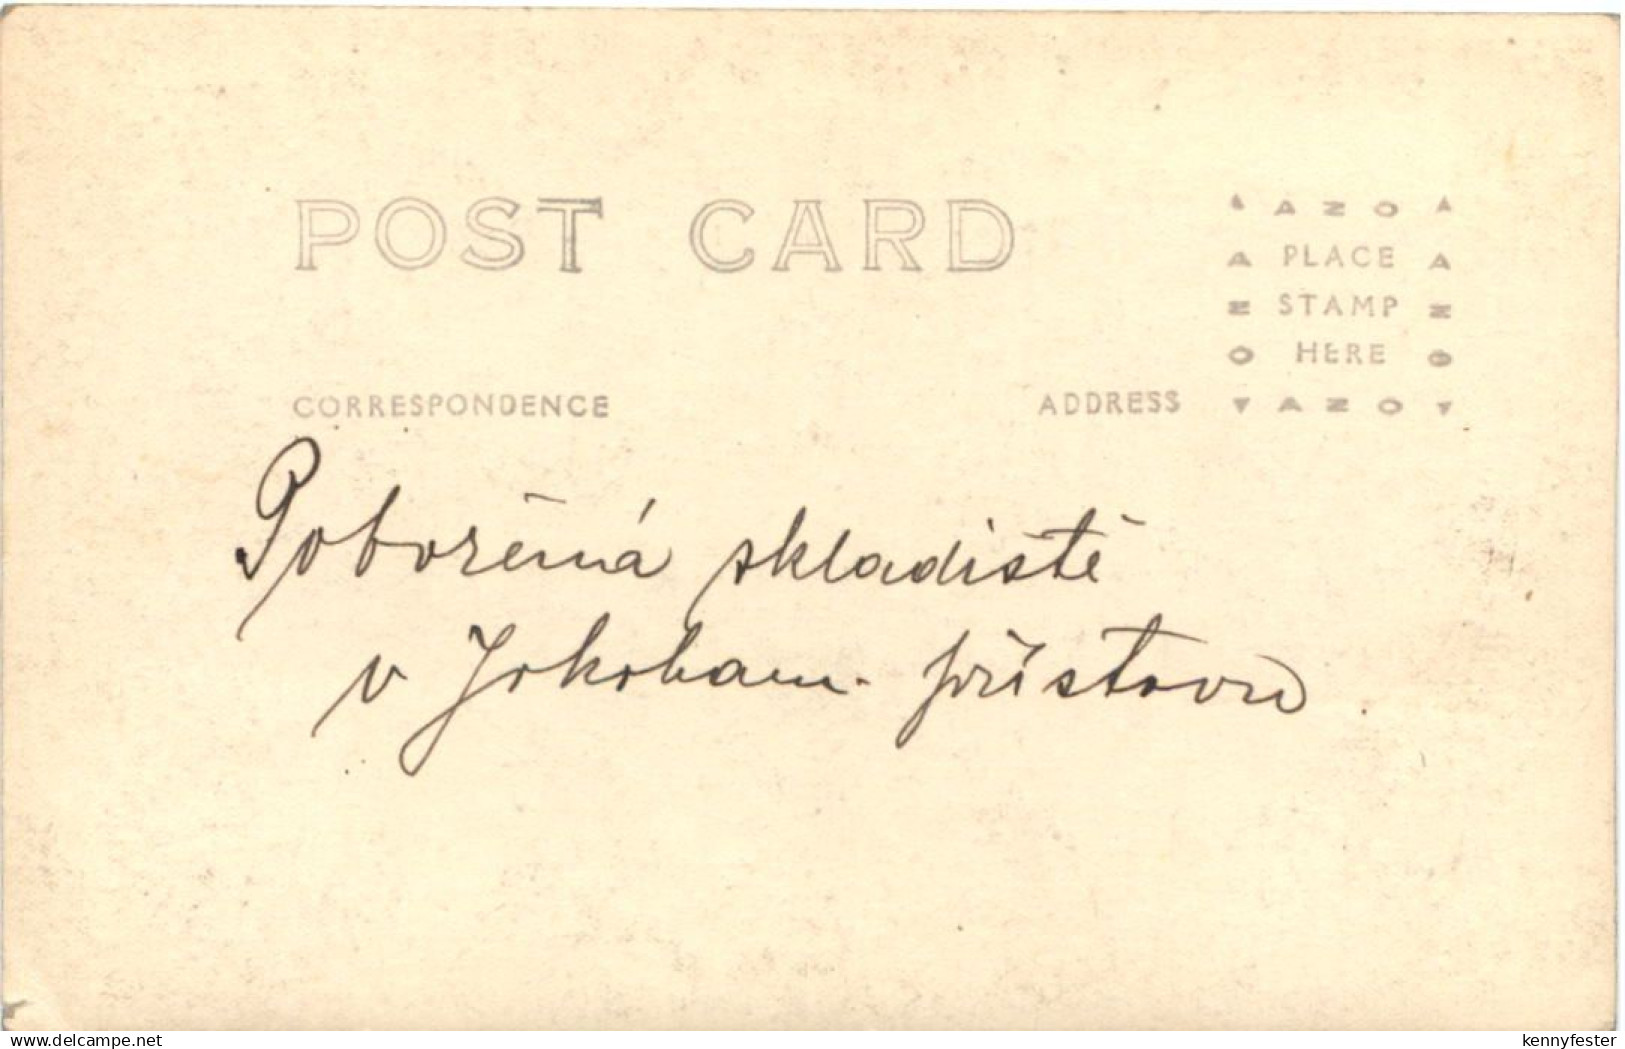 POST CARD
▲ AZO ▲
A PLACE A
N STAMP N
O HERE O
CORRESPONDENCE
ADDRESS
▼ AZO ▼
Pobořěná skladiště
v Jokoham. přístavu.
www.delcampe.net
kennyfester